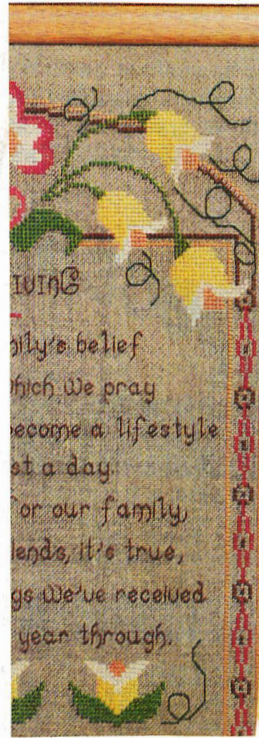 IVING
ily's belief
hich we pray
ecome a lifestyle
st a day.
for our family,
iends, it's true,
gs we've received
year through.